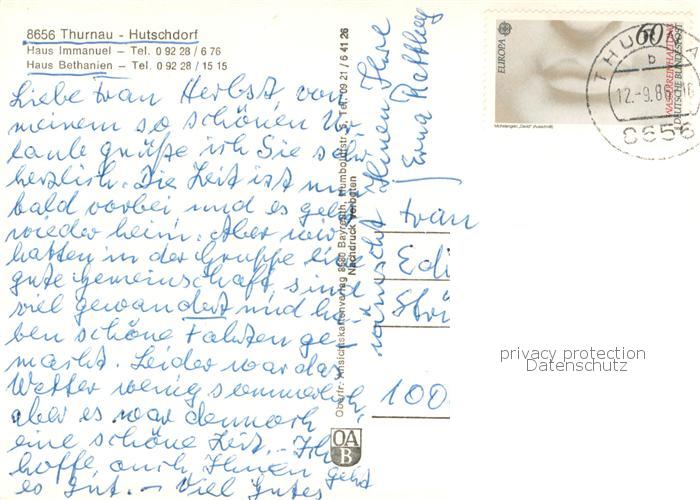 8656 Thurnau - Hutschdorf
Haus Immanuel – Tel. 0 92 28 / 6 76
Haus Bethanien – Tel. 0 92 28 / 15 15
Liebe Frau Herbst von
meinem so schönen Ur-
laub grüße ich Sie sehr
herzlich. Die Zeit ist nun
bald vorbei und es geht
wieder heim. Aber wir
hatten in der Gruppe eine
gute Gemeinschaft, sind
viel gewandert und ha-
ben schöne Fahrten ge-
macht. Leider war das
Wetter wenig sommerlich,
aber es war dennoch
eine schöne Zeit. – Ich
hoffe, auch Ihnen geht
es gut. – Viel Gutes
wünscht Ihnen Ihre
Erna
Oberfr. Ansichtskartenverlag 8580 Bayreuth, Humboldtstr. 5, Tel. 09 21 / 6 41 26
Nachdruck verboten
OA
B
EUROPA
60
NASSREINHALTUNG
DEUTSCHE BUNDESPOST
Michelangelo „David“ (Ausschnitt)
THURNAU
b
12.-9.86
8656
Frau
Edi
Str
100
privacy protection
Datenschutz